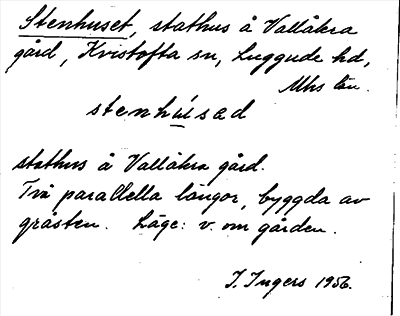 Stenhuset, stathus å Vallåkra
gård, Kvistofta sn, Luggude hd,
Mhs län.
stenhúsad
stathus å Vallåkra gård.
Två parallella längor, byggda av
gråsten. Läge: v. om gården.
I. Ingers 1956.